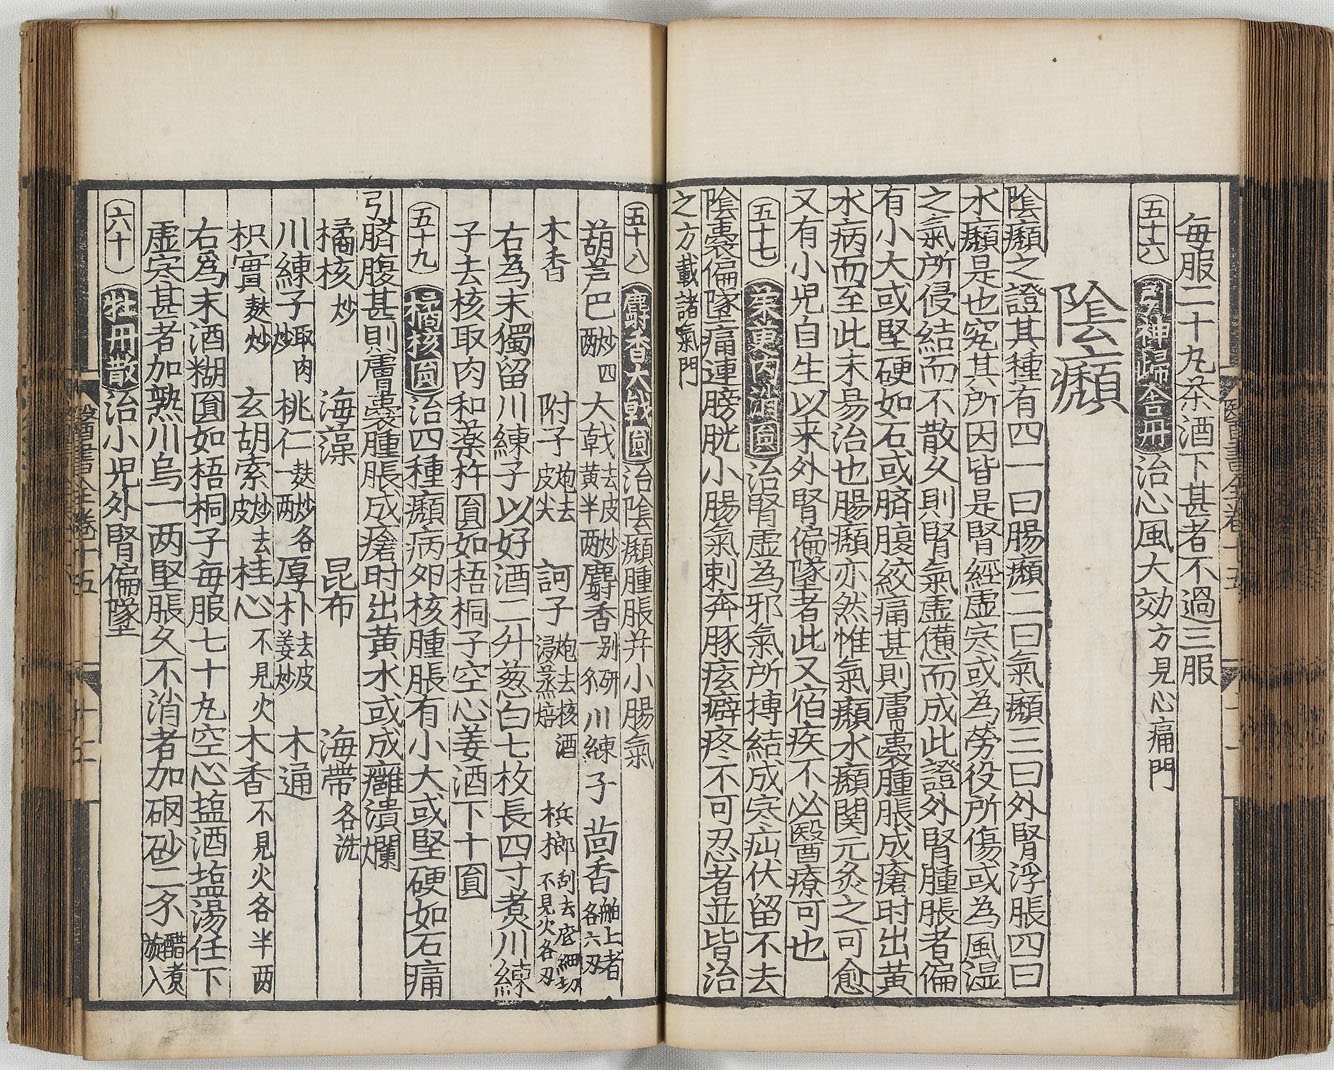 每服二十九茶酒下甚者不過三服
五十六 引神歸舍丹 治心風大効方見心痛門
陰癪
陰癪之證其種有四一曰腸癪二曰氣癪三曰外腎浮脹四曰
水癪是也究其所因皆是腎經虛寒或為勞役所傷或為風湿
之氣所侵結而不散久則腎氣虛憊而成此證外腎腫脹者偏
有小大或堅硬如石或臍腹絞痛甚則膚囊腫脹成瘡时出黄
水病而至此未昜治也腸癪亦然惟氣癪水癪関元灸之可愈
又有小児自生以来外腎偏墜者此又宿疾不必醫療可也
五十七 茱萸内消圎 治腎虛為邪氣所搏結成寒疝伏留不去
陰囊偏墜痛連膀胱小腸氣刺奔豚痃癖疼不可忍者並皆治
之方載諸氣門
五十八 麝香大戟圎 治陰癪腫脹并小腸氣
葫芦巴炒四两 大戟去皮炒黄半两 麝香别研一分 川練子 茴香舶上者各六刃
木香 附子炮去皮尖 訶子炮去核酒浸蒸焙 梹榔刮去底細切不見火各刃
右為末獨留川練子以好酒二升葱白七枚長四寸煮川練
子去核取肉和薬杵圎如梧桐子空心姜酒下十圎
五十九 橘核圎 治四種癪病夘核腫脹有小大或堅硬如石痛
引臍腹甚則膚囊腫脹成瘡时出黄水或成癰潰爛
橘核炒 海藻 昆布 海带各洗
川練子取肉炒 桃仁麸炒各一两 厚朴去皮姜炒 木通
枳實麸炒 玄胡索炒去皮 桂心不見火 木香不見火各半两
右為末酒糊圎如梧桐子每服七十九空心塩酒塩湯任下
虛寒甚者加熟川烏一两堅脹久不消者加硇砂二分醋煮旋入
六十 牡丹散 治小児外腎偏墜
醫書全卷十五